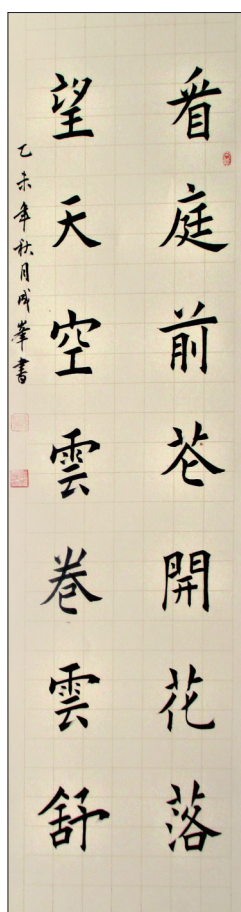 看庭前花開花落
望天空雲卷雲舒
乙未年秋月成峯書